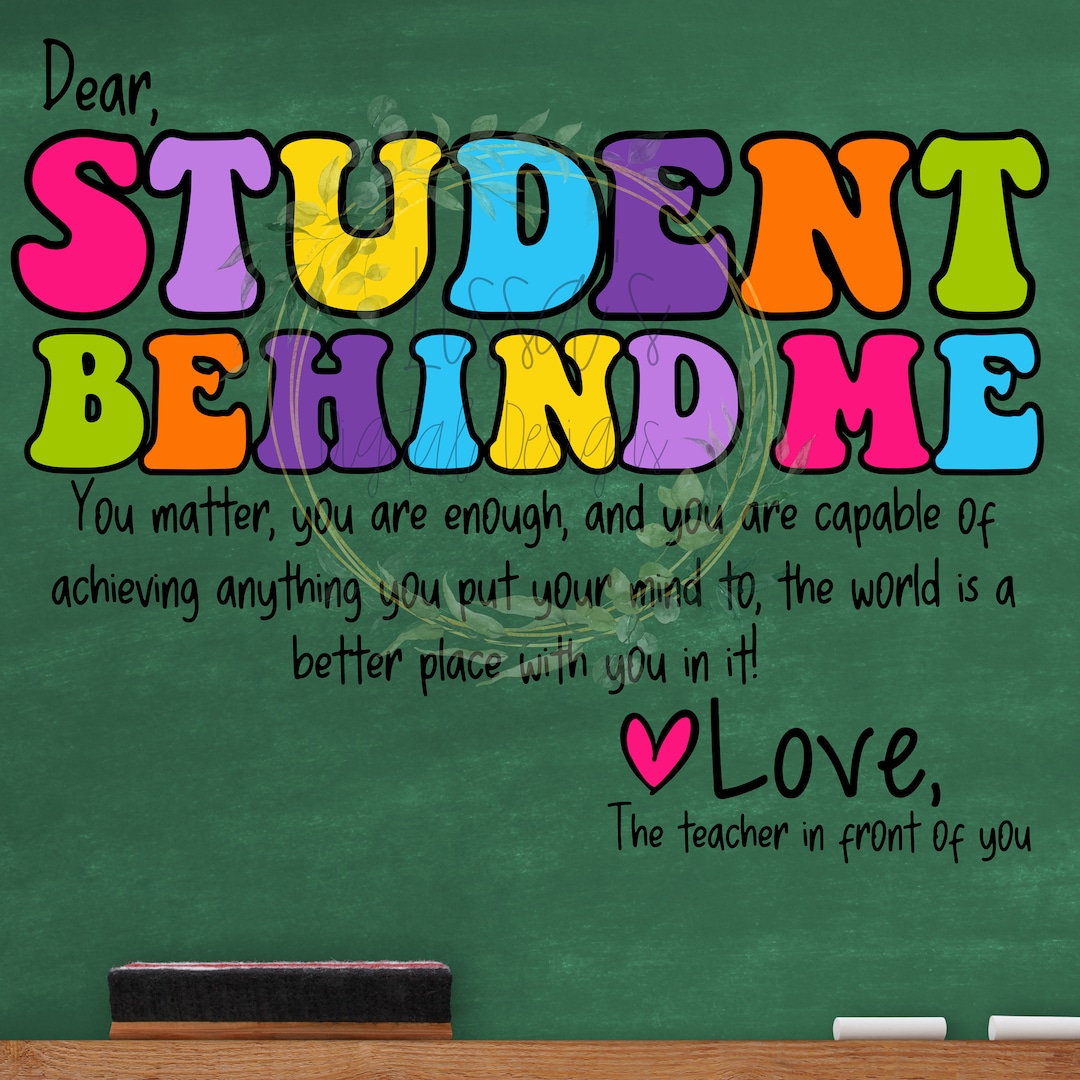 Dear,
STUDENT
BEHIND ME
Lussay's
Digital Designs
You matter, you are enough, and you are capable of
achieving anything you put your mind to, the world is a
better place with you in it!
Love,
The teacher in front of you